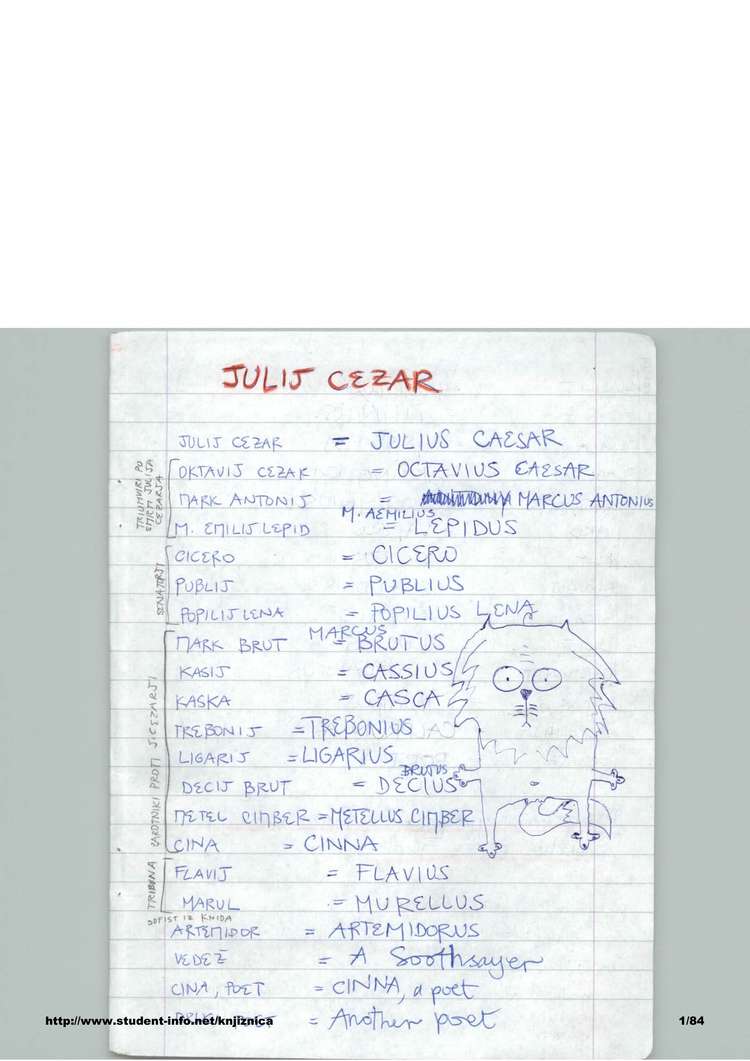 JULIJ CEZAR
JULIJ CEZAR = JULIUS CAESAR
TRIUMVIRI PO
SMRTI JULIJA
CEZARJA
OKTAVIJ CEZAR = OCTAVIUS CAESAR
MARK ANTONIJ = MARCUS ANTONIUS
M. EMILIJ LEPID = M. AEMILIUS LEPIDUS
SENATORJI
CICERO = CICERO
PUBLIJ = PUBLIUS
POPILIJ LENA = POPILIUS LENA
ZAROTNIKI PROTI J.CEZARJU
MARK BRUT = MARCUS BRUTUS
KASIJ = CASSIUS
KASKA = CASCA
TREBONIJ = TREBONIUS
LIGARIJ = LIGARIUS
DECIJ BRUT = DECIUS BRUTUS
METEL CIMBER = METELLUS CIMBER
CINA = CINNA
TRIBUNA
FLAVIJ = FLAVIUS
MARUL = MURELLUS
SOFIST IZ KNIDA
ARTEMIDOR = ARTEMIDORUS
VEDEŽ = A Soothsayer
CINA, POET = CINNA, a poet
POET = Another poet
http://www.student-info.net/knjiznica
1/84